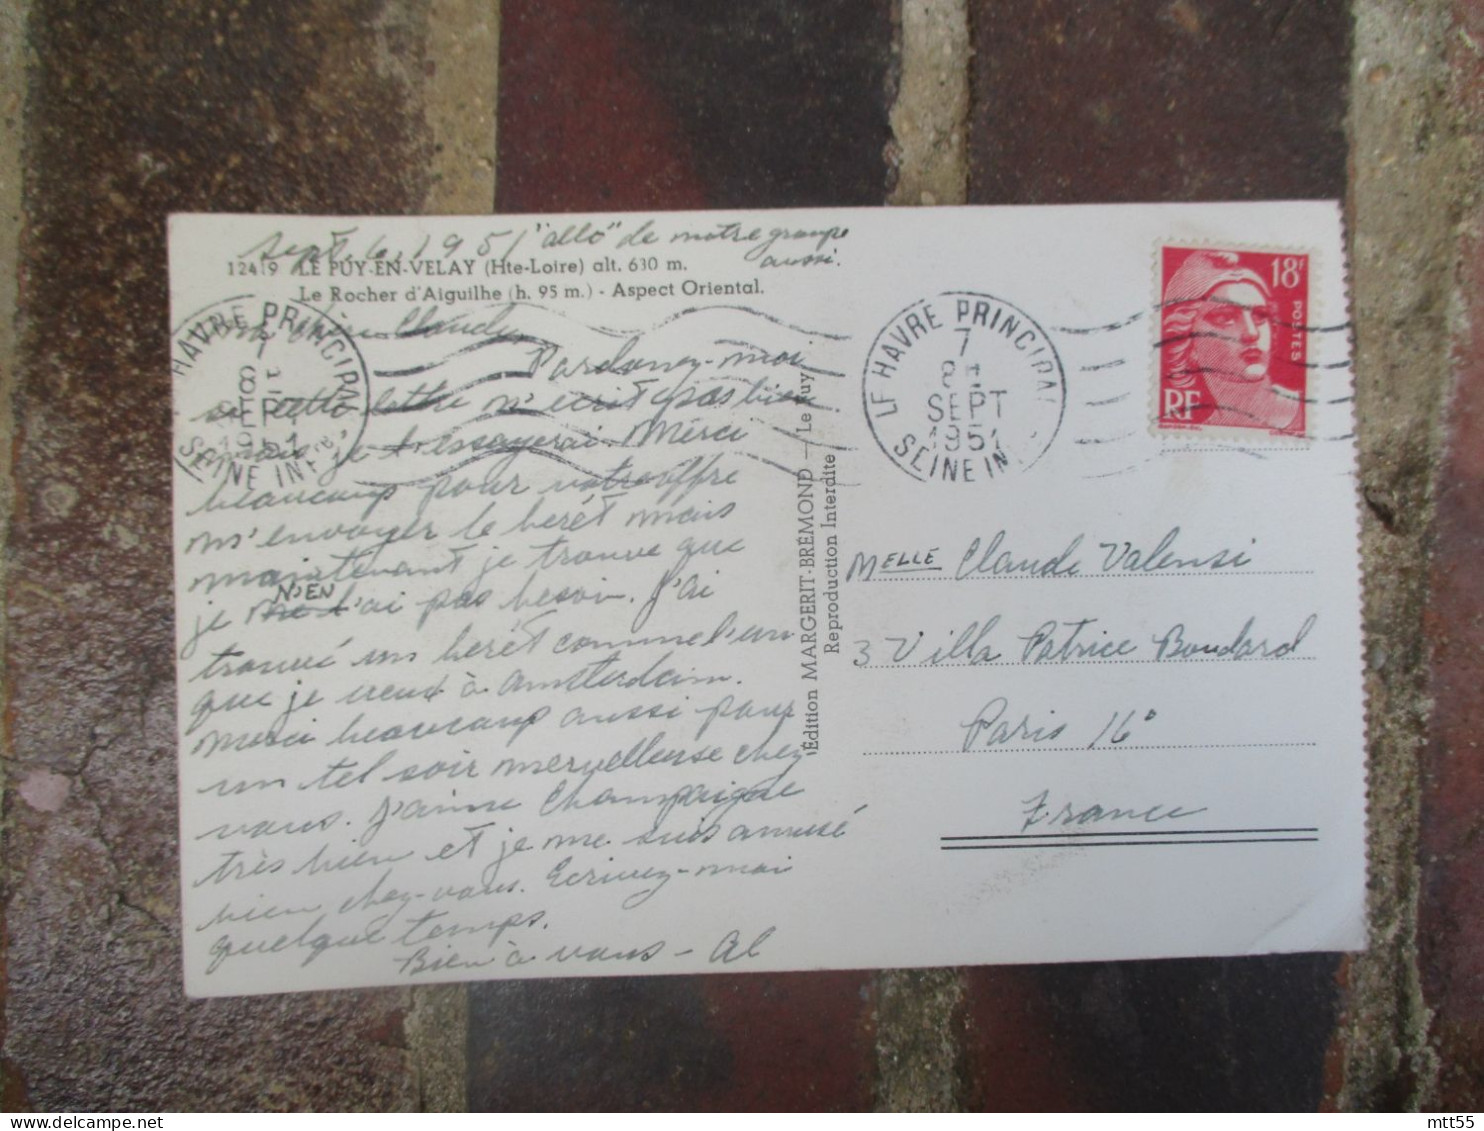 Sept. 6, 1951 "allô" de notre groupe
aussi.
12419 LE PUY-EN-VELAY (Hte-Loire) alt. 630 m.
Le Rocher d'Aiguilhe (h. 95 m.) - Aspect Oriental.
Claude
Pardonez-moi
si cette lettre n'ecrit pas bien
mais je l'essayerai. Merci
beaucoup pour votre offre
m'envoyer le berét mais
maintenant je trouve que
N'EN
je l'ai pas besoin. J'ai
trouvé un berét comme l'un
que je à Amsterdam.
Merci beaucoup aussi pour
un tel soir merveilleuse chez-
vous. J'aime Champaigne
très bien et je me suis amusé
bien chez-vous. Ecrivez-moi
quelque temps.
Bien à vous - Al
Édition MARGERIT-BRÉMOND — Le Puy
Reproduction Interdite
HAVRE PRINCIPAL
7
SEPT
1951
SEINE INFRE
LE HAVRE PRINCIPAL
7
SEPT
1951
SEINE IN
18F
POSTES
RF
MELLE Claude Valensi
3 Villa Patrice Boudard
Paris 16°
France
mtt55